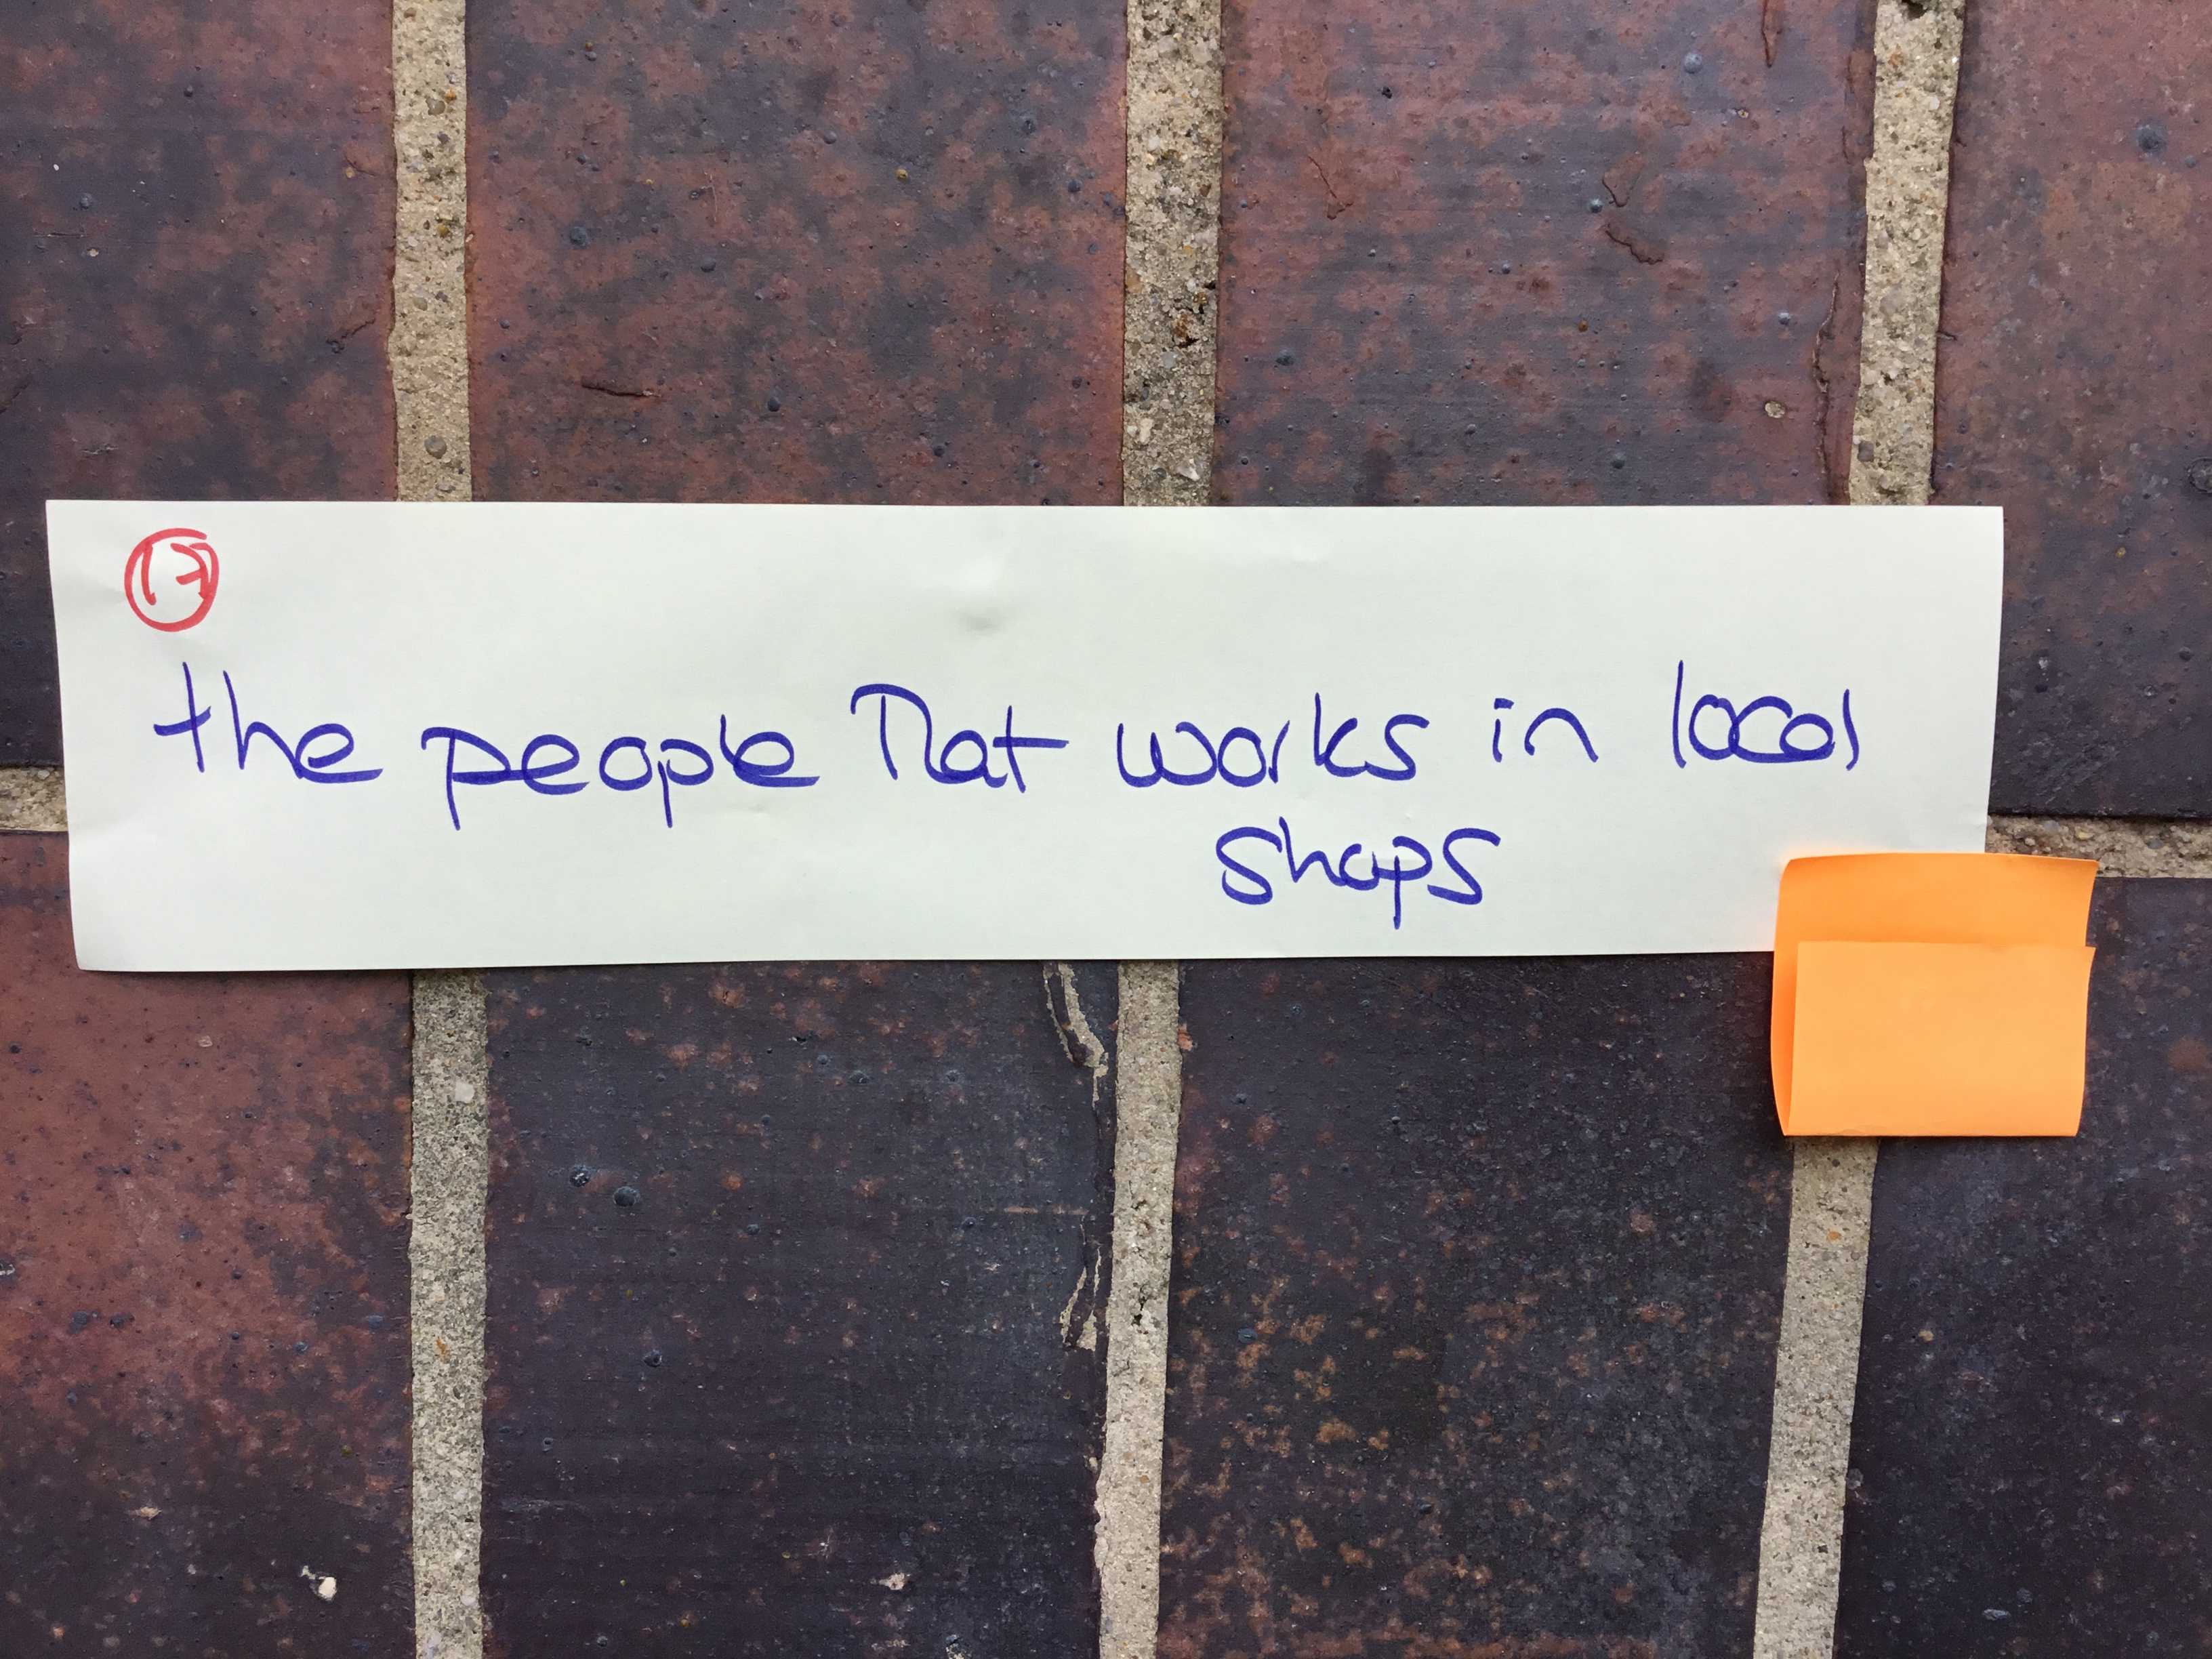 17
the people that works in local
shops